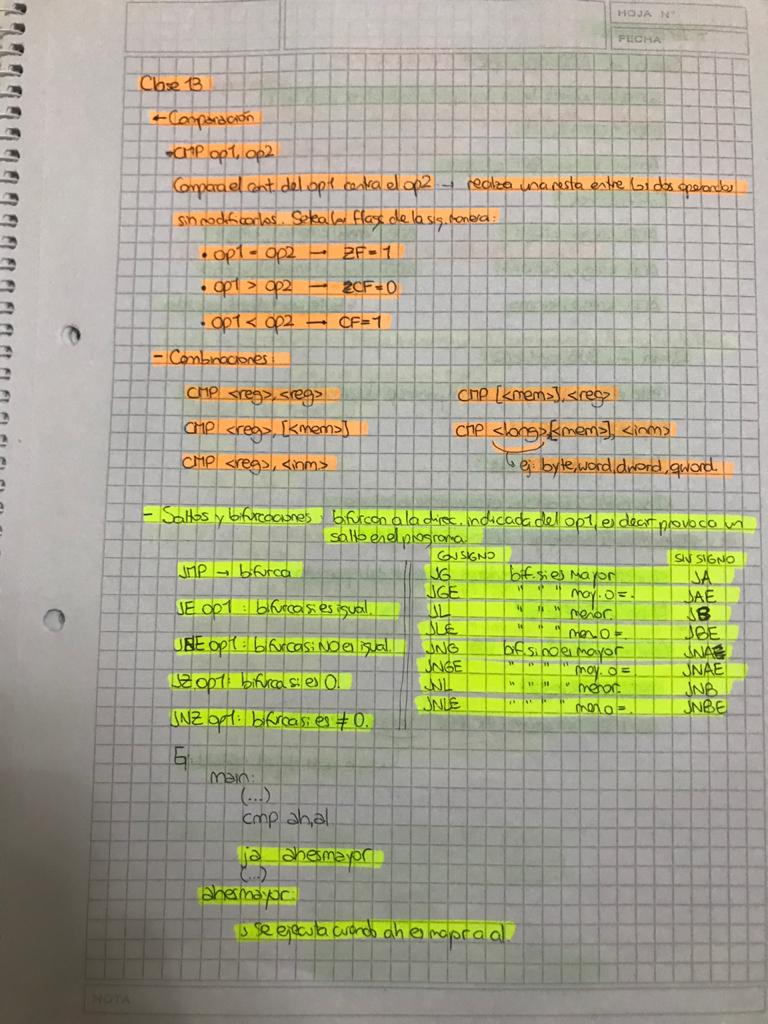 HOJA N°
FECHA
Clase 13
← Comparación
CMP op1, op2
Compara el cont. del op1 contra el op2 → realiza una resta entre los dos operandos
sin modificarlos. Setea los flags de la sig. manera:
• op1 = op2 → ZF=1
• op1 > op2 → CF=0
• op1 < op2 → CF=1
- Combinaciones:
CMP <reg>,<reg>
CMP <reg>,[<mem>]
CMP <reg>,<inm>
CMP [<mem>],<reg>
CMP <long>[<mem>],<inm>
↳ ej: byte,word,dword,qword.
- Saltos y bifurcaciones: bifurcan a la direc. indicada del op1, es decir provoca un
salto en el programa.
JMP → bifurca
JE op1: bifurca si es igual.
JNE op1: bifurca si NO es igual.
JZ op1: bifurca si es 0.
JNZ op1: bifurca si es ≠ 0.
CON SIGNO SIN SIGNO
JG bif. si es mayor JA
JGE " " " may. o =. JAE
JL " " " menor. JB
JLE " " " men. o =. JBE
JNG bif. si no es mayor JNA
JNGE " " " " may. o =. JNAE
JNL " " " " menor. JNB
JNLE " " " " men o =. JNBE
Ej:
main:
(...)
cmp ah,al
ja ahesmayor
(...)
ahesmayor:
↳ se ejecuta cuando ah es mayor a al.
NOTA